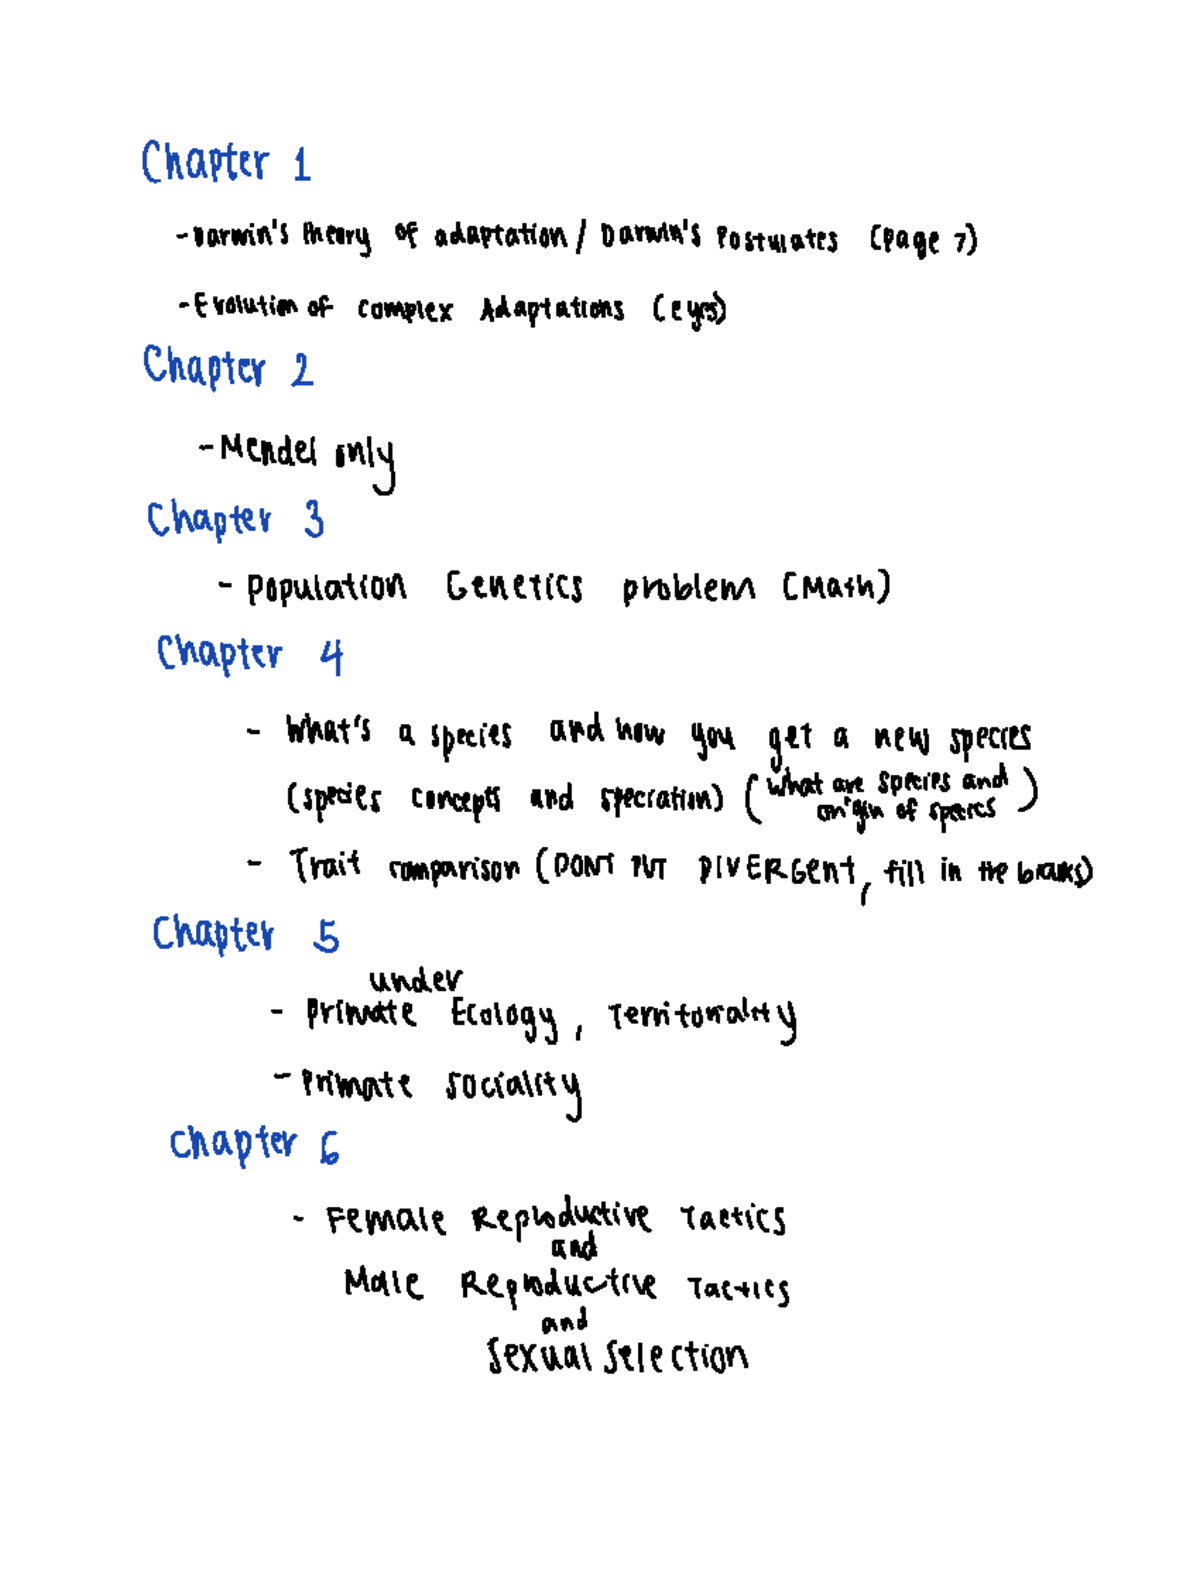 Chapter 1
- Darwin's theory of adaptation / Darwin's Postulates (page 7)
- Evolution of complex Adaptations (eyes)
Chapter 2
- Mendel only
Chapter 3
- Population Genetics problem (Math)
Chapter 4
- What's a species and how you get a new species
(species concepts and speciation) (What are species and origin of species)
- Trait comparison (DONT PUT DIVERGENT, fill in the blanks)
Chapter 5
under
- Primate Ecology, Territorality
- Primate sociality
Chapter 6
- Female Reproductive Tactics
and
Male Reproductive Tactics
and
Sexual Selection